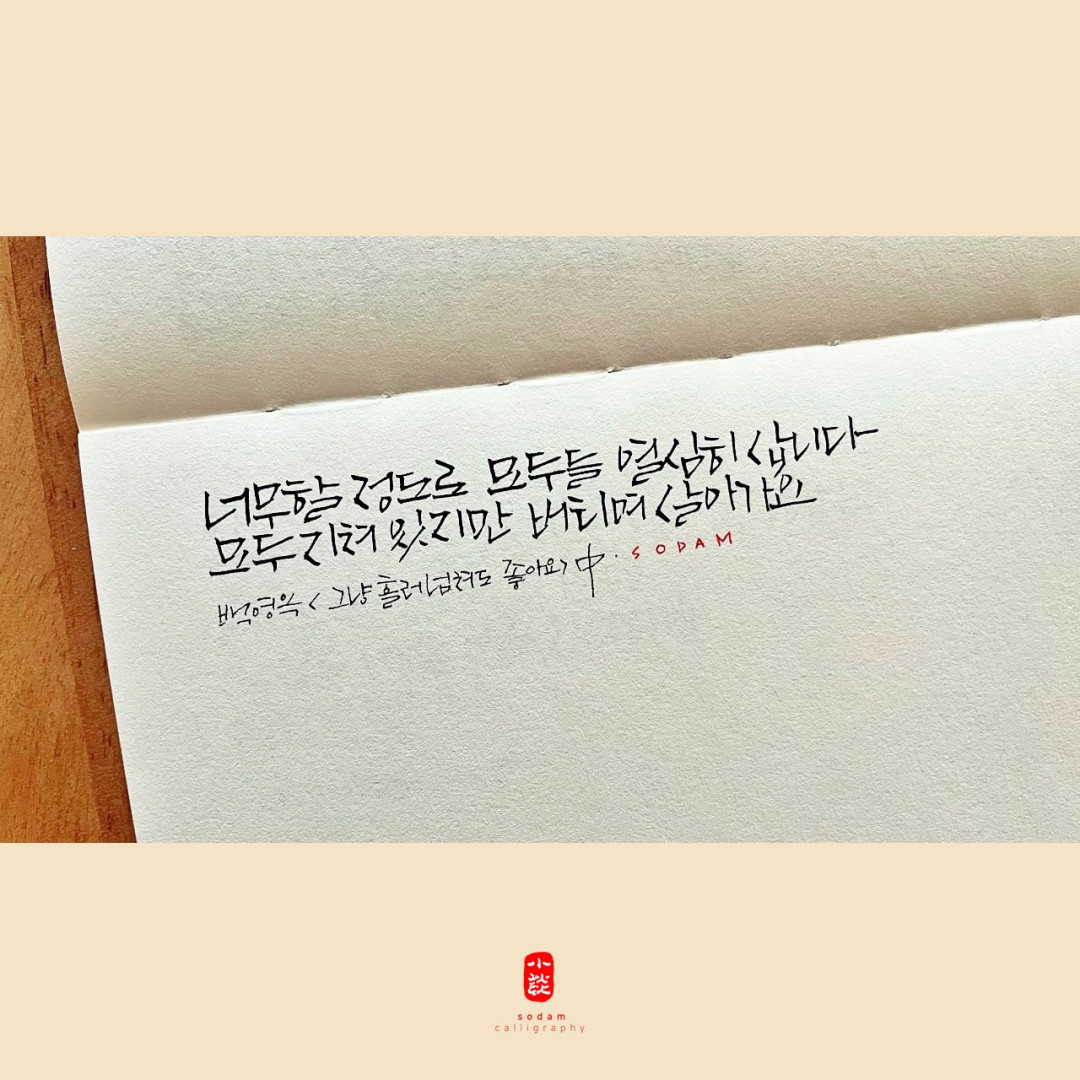 너무할 정도로 모두들 열심히 삽니다
모두 지쳐 있지만 버티며 살아가요
백영옥 < 그냥 흘러넘쳐도 좋아요 > 中 · SODAM
小談
sodam
calligraphy